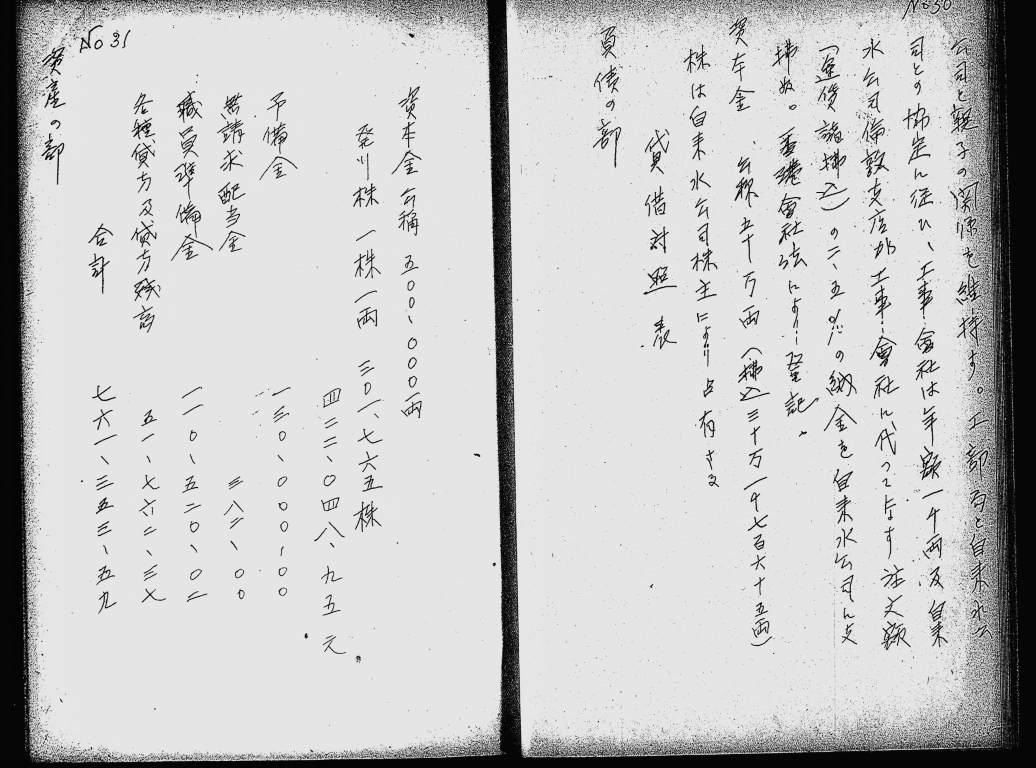 No 30
公司と親子の関係を維持す。工部局と自来水公
司との協定に従ひ、工事會社は年額一千両及自来
水公司倫敦支店が工事會社に代つてなす注文額
(運賃諸掛込)の二、五%の納金を自来水公司に支
拂ぬ。香港會社法により登記。
資本金 公称五十万両(拂込三十万一千七百六十五両)
株は自来水公司株主により占有さる
貸借対照表
負債の部
No 31
資本金公稱 五〇〇、〇〇〇両
発行株 一株一両 三〇一、七六五株
四二二、〇四八、九五元
予備金 一三〇、〇〇〇、〇〇
無請求配当金 三八二、〇〇
職員準備金 一一〇、五二〇、〇二
各種貸方及貸方残高 五一、七六二、三七
合計 七六一、三五三、五九
資産の部